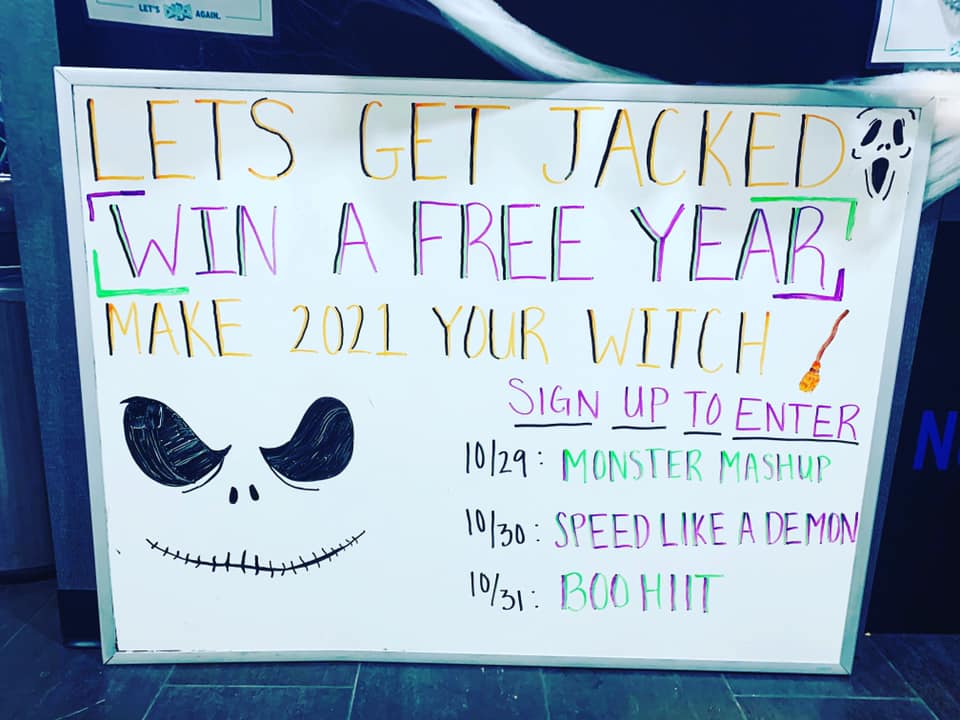 LET'S AGAIN.
LETS GET JACKED
WIN A FREE YEAR
MAKE 2021 YOUR WITCH
SIGN UP TO ENTER
10/29: MONSTER MASHUP
10/30: SPEED LIKE A DEMON
10/31: BOO HIIT
N